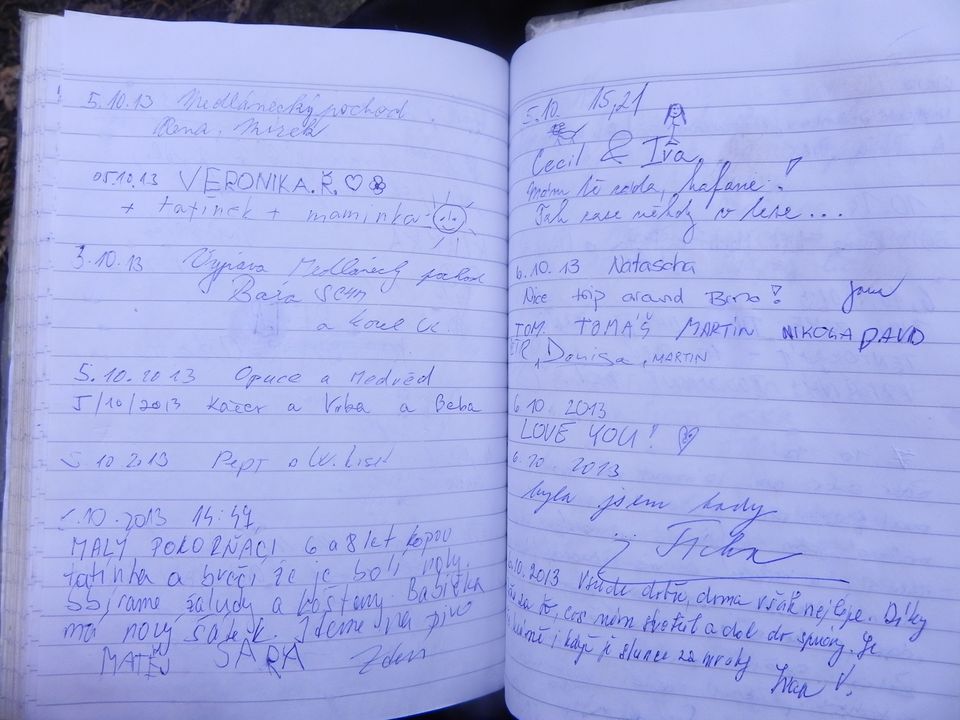 5.10.13 Medlánecký pochod
Mirek
05.10.13 VERONIKA.Ř.
+ tatínek + maminka
5.10.13 Výprava Medlánecký pochod
Bára
a Karel K.
5.10.2013 Opuce a Medvěd
5/10/2013 Kačer a Vrba a Beba
5 10 2013 Pept a
5.10.2013 14:47
MALÝ POKORŇÁCI 6 a 8 let kopou
tatínka a brečí že je bolí nohy.
Sbírame žaludy a kaštany. Babička
má nový šátek. Jdeme na pivo
MATĚJ SÁRA Zden
5.10. 15,21
Cecil & Iva
mám tě ráda, hafane!
Tak zase někdy v lese...
6.10.13 Natascha
Nice trip around Brno! Jana
TOM TOMÁŠ MARTIN NIKOLA DAVID
PETR, Denisa, MARTIN
6.10.2013
LOVE YOU!
6.10.2013
byla jsem tady
.10.2013 Všude dobře, doma však nejlépe. Díky
za to, cos nám stvořil a dal do správy. Je
i když je slunce za mraky
Ivan V.